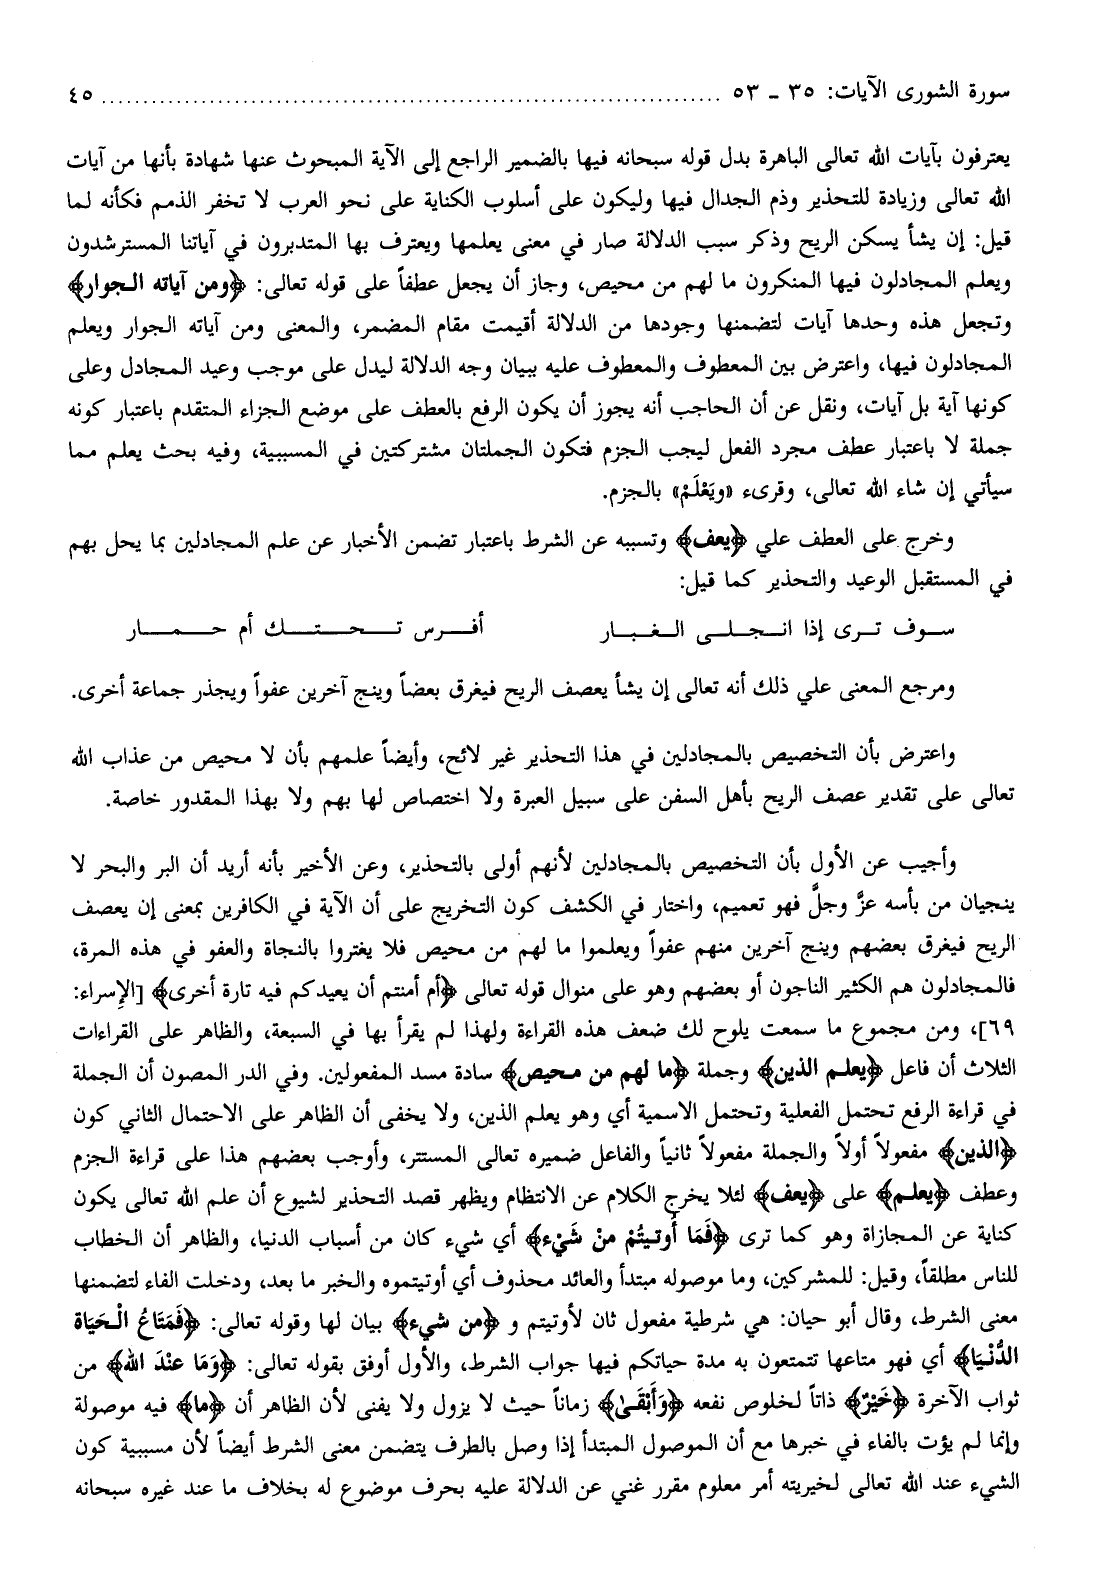 سورة الشورى الآيات: ٣٥ ـ ٥٣ ........................................................................... ٤٥
يعترفون بآيات الله تعالى الباهرة بدل قوله سبحانه فيها بالضمير الراجع إلى الآية المبحوث عنها شهادة بأنها من آيات
الله تعالى وزيادة للتحذير وذم الجدال فيها وليكون على أسلوب الكناية على نحو العرب لا تخفر الذمم فكأنه لما
قيل: إن يشأ يسكن الريح وذكر سبب الدلالة صار في معنى يعلمها ويعترف بها المتدبرون في آياتنا المسترشدون
ويعلم المجادلون فيها المنكرون ما لهم من محيص، وجاز أن يجعل عطفاً على قوله تعالى: ﴿ومن آياته الجوار﴾
وتجعل هذه وحدها آيات لتضمنها وجودها من الدلالة أقيمت مقام المضمر، والمعنى ومن آياته الجوار ويعلم
المجادلون فيها، واعترض بين المعطوف والمعطوف عليه ببيان وجه الدلالة ليدل على موجب وعيد المجادل وعلى
كونها آية بل آيات، ونقل عن أن الحاجب أنه يجوز أن يكون الرفع بالعطف على موضع الجزاء المتقدم باعتبار كونه
جملة لا باعتبار عطف مجرد الفعل ليجب الجزم فتكون الجملتان مشتركتين في المسببية، وفيه بحث يعلم مما
سيأتي إن شاء الله تعالى، وقرىء «ويَعْلَمْ» بالجزم.
وخرج على العطف علي ﴿يعف﴾ وتسببه عن الشرط باعتبار تضمن الأخبار عن علم المجادلين بما يحل بهم
في المستقبل الوعيد والتحذير كما قيل:
سوف ترى إذا انجلى الغبار أفرس تحتك أم حمار
ومرجع المعنى علي ذلك أنه تعالى إن يشأ يعصف الريح فيغرق بعضاً وينج آخرين عفواً ويجذر جماعة أخرى.
واعترض بأن التخصيص بالمجادلين في هذا التحذير غير لائح، وأيضاً علمهم بأن لا محيص من عذاب الله
تعالى على تقدير عصف الريح بأهل السفن على سبيل العبرة ولا اختصاص لها بهم ولا بهذا المقدور خاصة.
وأجيب عن الأول بأن التخصيص بالمجادلين لأنهم أولى بالتحذير، وعن الأخير بأنه أريد أن البر والبحر لا
ينجيان من بأسه عزَّ وجلَّ فهو تعميم، واختار في الكشف كون التخريج على أن الآية في الكافرين بمعنى إن يعصف
الريح فيغرق بعضهم وينج آخرين منهم عفواً ويعلموا ما لهم من محيص فلا يغتروا بالنجاة والعفو في هذه المرة،
فالمجادلون هم الكثير الناجون أو بعضهم وهو على منوال قوله تعالى ﴿أم أمنتم أن يعيدكم فيه تارة أخرى﴾ [الإسراء:
٦٩]، ومن مجموع ما سمعت يلوح لك ضعف هذه القراءة ولهذا لم يقرأ بها في السبعة، والظاهر على القراءات
الثلاث أن فاعل ﴿يعلم الذين﴾ وجملة ﴿ما لهم من محيص﴾ سادة مسد المفعولين. وفي الدر المصون أن الجملة
في قراءة الرفع تحتمل الفعلية وتحتمل الاسمية أي وهو يعلم الذين، ولا يخفى أن الظاهر على الاحتمال الثاني كون
﴿الذين﴾ مفعولاً أولاً والجملة مفعولاً ثانياً والفاعل ضميره تعالى المستتر، وأوجب بعضهم هذا على قراءة الجزم
وعطف ﴿يعلم﴾ على ﴿يعف﴾ لئلا يخرج الكلام عن الانتظام ويظهر قصد التحذير لشيوع أن علم الله تعالى يكون
كناية عن المجازاة وهو كما ترى ﴿فَمَا أُوتيتُمْ منْ شَيْء﴾ أي شيء كان من أسباب الدنيا، والظاهر أن الخطاب
للناس مطلقاً، وقيل: للمشركين، وما موصوله مبتدأ والعائد محذوف أي أوتيتموه والخبر ما بعد، ودخلت الفاء لتضمنها
معنى الشرط، وقال أبو حيان: هي شرطية مفعول ثان لأوتيتم و ﴿من شيء﴾ بيان لها وقوله تعالى: ﴿فَمَتَاعُ الْحَيَاة
الدُّنْيَا﴾ أي فهو متاعها تتمتعون به مدة حياتكم فيها جواب الشرط، والأول أوفق بقوله تعالى: ﴿وَمَا عنْدَ الله﴾ من
ثواب الآخرة ﴿خَيْرٌ﴾ ذاتاً لخلوص نفعه ﴿وَأَبْقَىٰ﴾ زماناً حيث لا يزول ولا يفنى لأن الظاهر أن ﴿ما﴾ فيه موصولة
وإنما لم يؤت بالفاء في خبرها مع أن الموصول المبتدأ إذا وصل بالظرف يتضمن معنى الشرط أيضاً لأن مسببية كون
الشيء عند الله تعالى لخيريته أمر معلوم مقرر غني عن الدلالة عليه بحرف موضوع له بخلاف ما عند غيره سبحانه